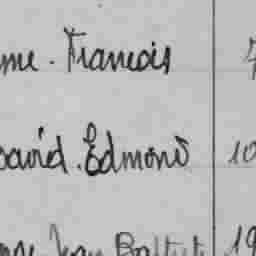 me. Francois 7
David. Edmond 10
Jean Baptiste 19